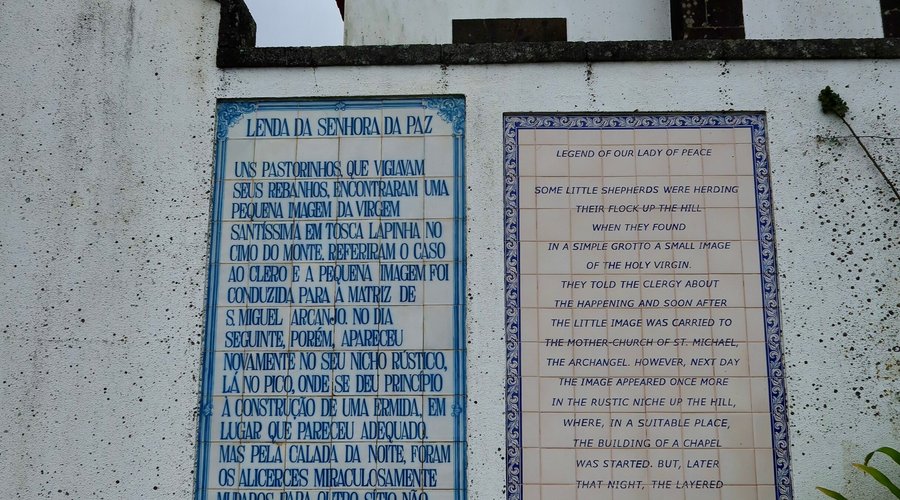 LENDA DA SENHORA DA PAZ
UNS PASTORINHOS, QUE VIGIAVAM
SEUS REBANHOS, ENCONTRARAM UMA
PEQUENA IMAGEM DA VIRGEM
SANTÍSSIMA EM TOSCA LAPINHA NO
CIMO DO MONTE. REFERIRAM O CASO
AO CLERO E A PEQUENA IMAGEM FOI
CONDUZIDA PARA A MATRIZ DE
S. MIGUEL ARCANJO. NO DIA
SEGUINTE, PORÉM, APARECEU
NOVAMENTE NO SEU NICHO RÚSTICO,
LÁ NO PICO, ONDE SE DEU PRINCÍPIO
À CONSTRUÇÃO DE UMA ERMIDA, EM
LUGAR QUE PARECEU ADEQUADO.
MAS PELA CALADA DA NOITE, FORAM
OS ALICERCES MIRACULOSAMENTE
MUDADOS PARA OUTRO SÍTIO NÃO
LEGEND OF OUR LADY OF PEACE
SOME LITTLE SHEPHERDS WERE HERDING
THEIR FLOCK UP THE HILL
WHEN THEY FOUND
IN A SIMPLE GROTTO A SMALL IMAGE
OF THE HOLY VIRGIN.
THEY TOLD THE CLERGY ABOUT
THE HAPPENING AND SOON AFTER
THE LITTLE IMAGE WAS CARRIED TO
THE MOTHER-CHURCH OF ST. MICHAEL,
THE ARCHANGEL. HOWEVER, NEXT DAY
THE IMAGE APPEARED ONCE MORE
IN THE RUSTIC NICHE UP THE HILL,
WHERE, IN A SUITABLE PLACE,
THE BUILDING OF A CHAPEL
WAS STARTED. BUT, LATER
THAT NIGHT, THE LAYERED